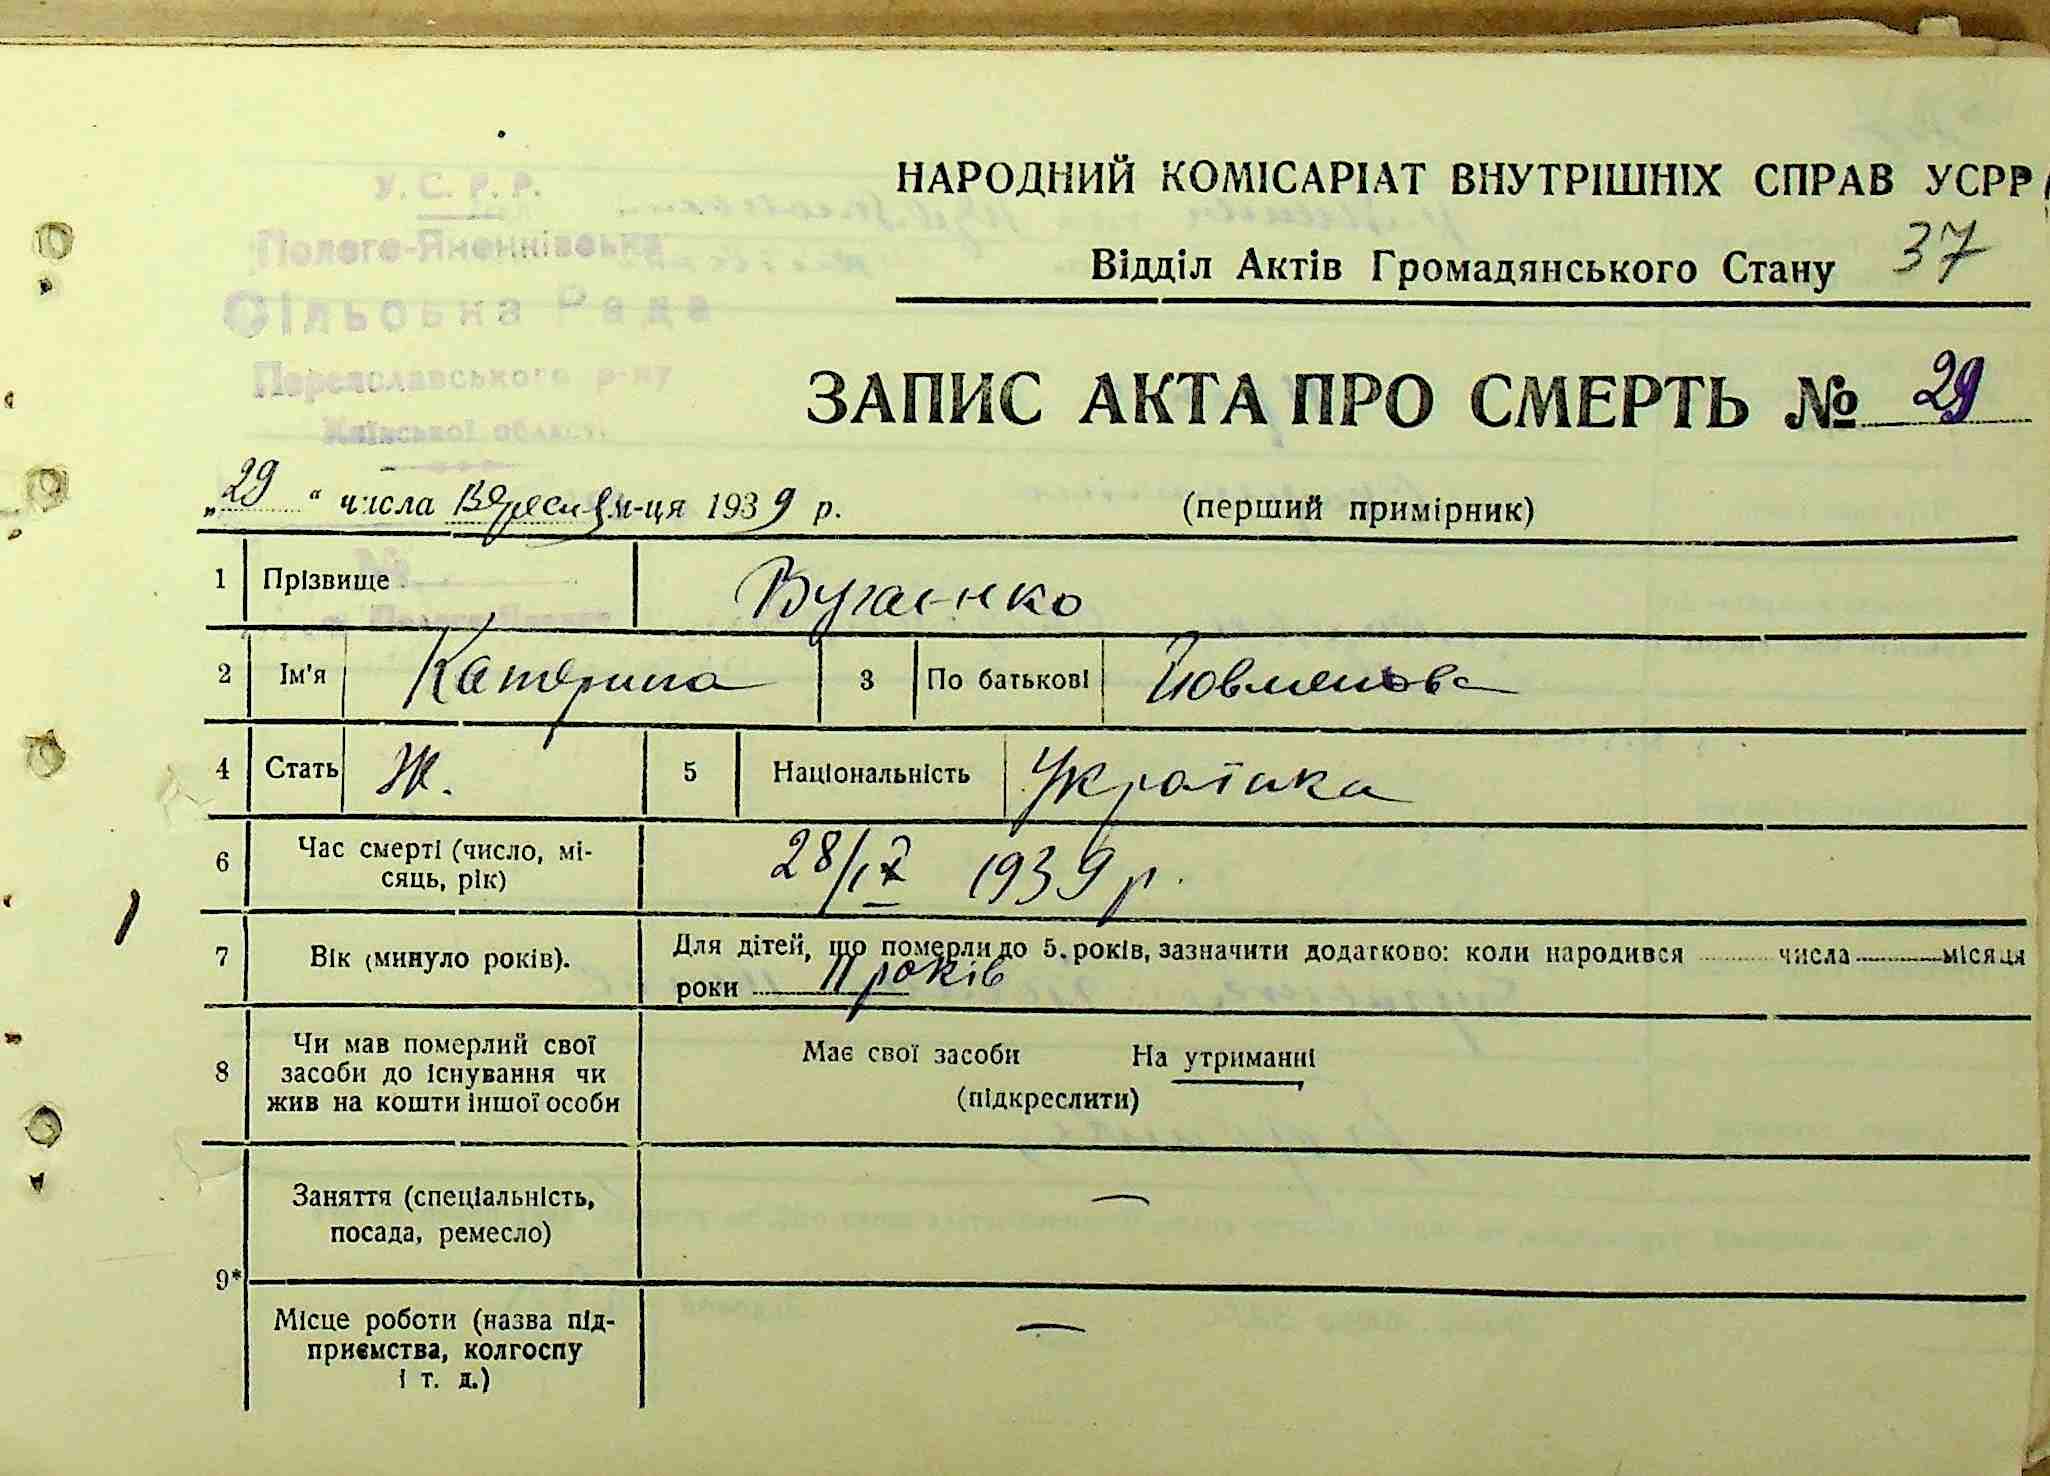 У.С.Р.Р.
Пологе-Яненківська
Сільська Рада
Переяславського р-ну
Київської області
НАРОДНИЙ КОМІСАРІАТ ВНУТРІШНІХ СПРАВ УСРР
Відділ Актів Громадянського Стану 37
ЗАПИС АКТА ПРО СМЕРТЬ № 29
„29“ числа Вересня м-ця 1939 р. (перший примірник)
1 Прізвище
2 Ім'я Катерина 3 По батькові
4 Стать Ж. 5 Національність Українка
6 Час смерті (число, мі-
сяць, рік) 28/IX 1939 р.
7 Вік (минуло років). Для дітей, що померли до 5 років, зазначити додатково: коли народився числа місяця
роки 11 років
8 Чи мав померлий свої
засоби до існування чи
жив на кошти іншої особи
Має свої засоби На утриманні
(підкреслити)
9*
Заняття (спеціальність,
посада, ремесло) —
Місце роботи (назва під-
приємства, колгоспу
і т. д.) —